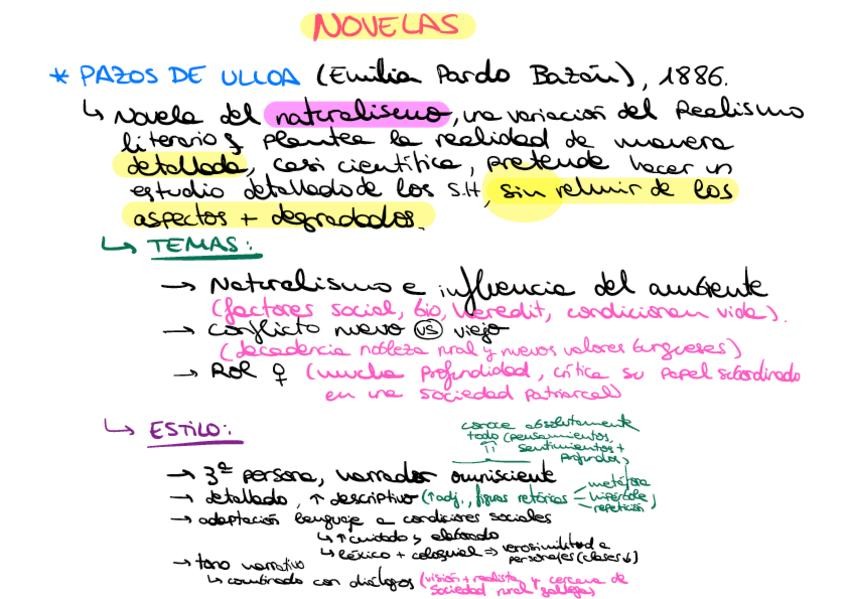 NOVELAS
* PAZOS DE ULLOA (Emilia Pardo Bazán), 1886.
↳ Novela del naturalismo, una variación del Realismo
literario y plantea la realidad de manera
detallada, casi científica, pretende hacer un
estudio detallado de los S.H, sin rehuir de los
aspectos + degradados.
↳ TEMAS:
→ Naturalismo e influencia del ambiente
(factores social, bio, heredit, condicionan vida).
→ Conflicto nuevo vs viejo
(decadencia nobleza rural y nuevos valores burgueses)
→ Rol ♀ (mucha profundidad, crítica su papel subordinado
en una sociedad patriarcal)
↳ ESTILO:
conoce absolutamente
todo (pensamientos,
sentimientos +
profundos)
→ 3ª persona, narrador omnisciente
→ detallado, ↑ descriptivo (↑ adj., figuras retóricas metáfora
hipérbole
repetición)
→ adaptación lenguaje a condiciones sociales
↳ ↑ cuidado y elaborado
↳ léxico + coloquial ⇒ verosimilitud a
personajes (clases ↓)
→ tono narrativo
↳ combinado con diálogos (visión + realista y cercana de
sociedad rural gallega)